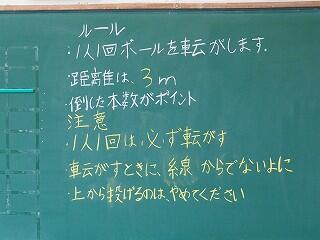 ルール
・1人1回ボールを転がします。
・距離は、3m
・倒した本数がポイント
注意
・1人1回は必ず転がす
・転がすときに、線からでないよに
・上から投げるのは、やめてください